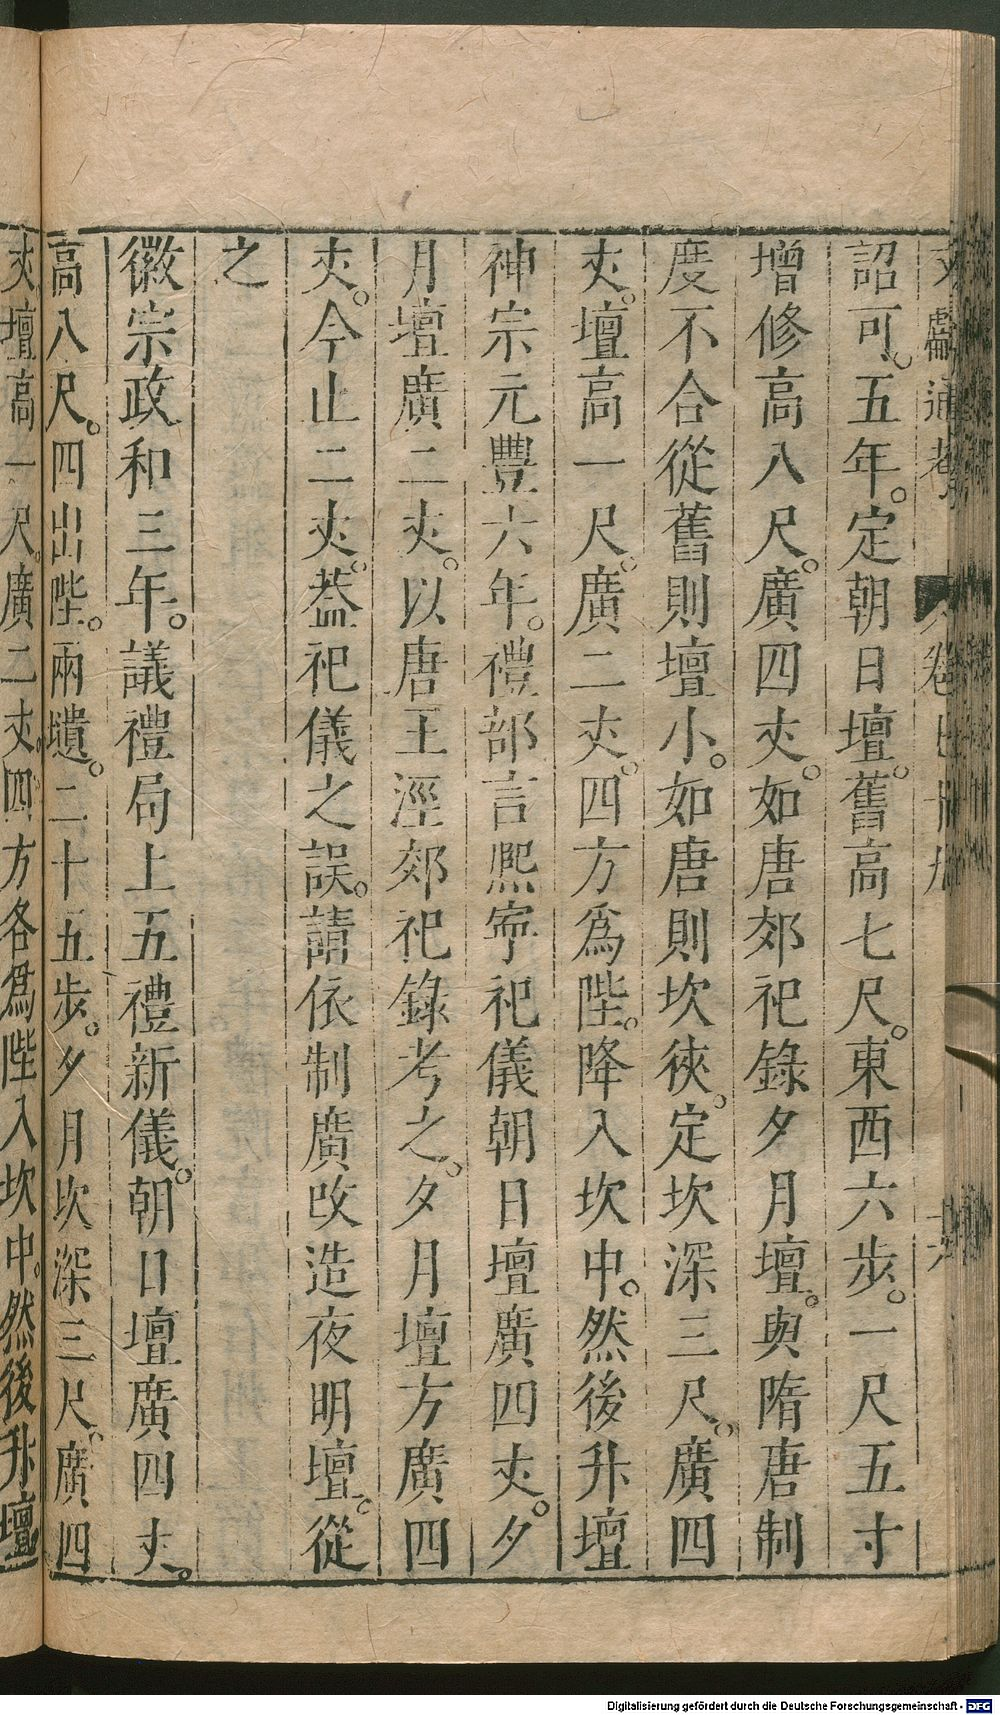 文獻通考 卷七十九
詔可。五年。定朝日壇。舊高七尺。東西六步。一尺五寸
增修高八尺。廣四丈。如唐郊祀錄夕月壇。與隋唐制
度不合從舊則壇小。如唐則坎狹。定坎深三尺。廣四
丈。壇高一尺。廣二丈。四方為陛。降入坎中。然後升壇
神宗元豐六年。禮部言熈寧祀儀朝日壇廣四丈。夕
月壇廣二丈。以唐王涇郊祀錄考之。夕月壇方廣四
丈。今止二丈。葢祀儀之誤。請依制廣改造夜明壇。從
之
徽宗政和三年。議禮局上五禮新儀。朝日壇廣四丈。
高八尺。四出陛。兩壝。二十五步。夕月坎深三尺。廣四
丈壇高一尺。廣二丈。四方各為陛入坎中。然後升壇
Digitalisierung gefördert durch die Deutsche Forschungsgemeinschaft - DFG